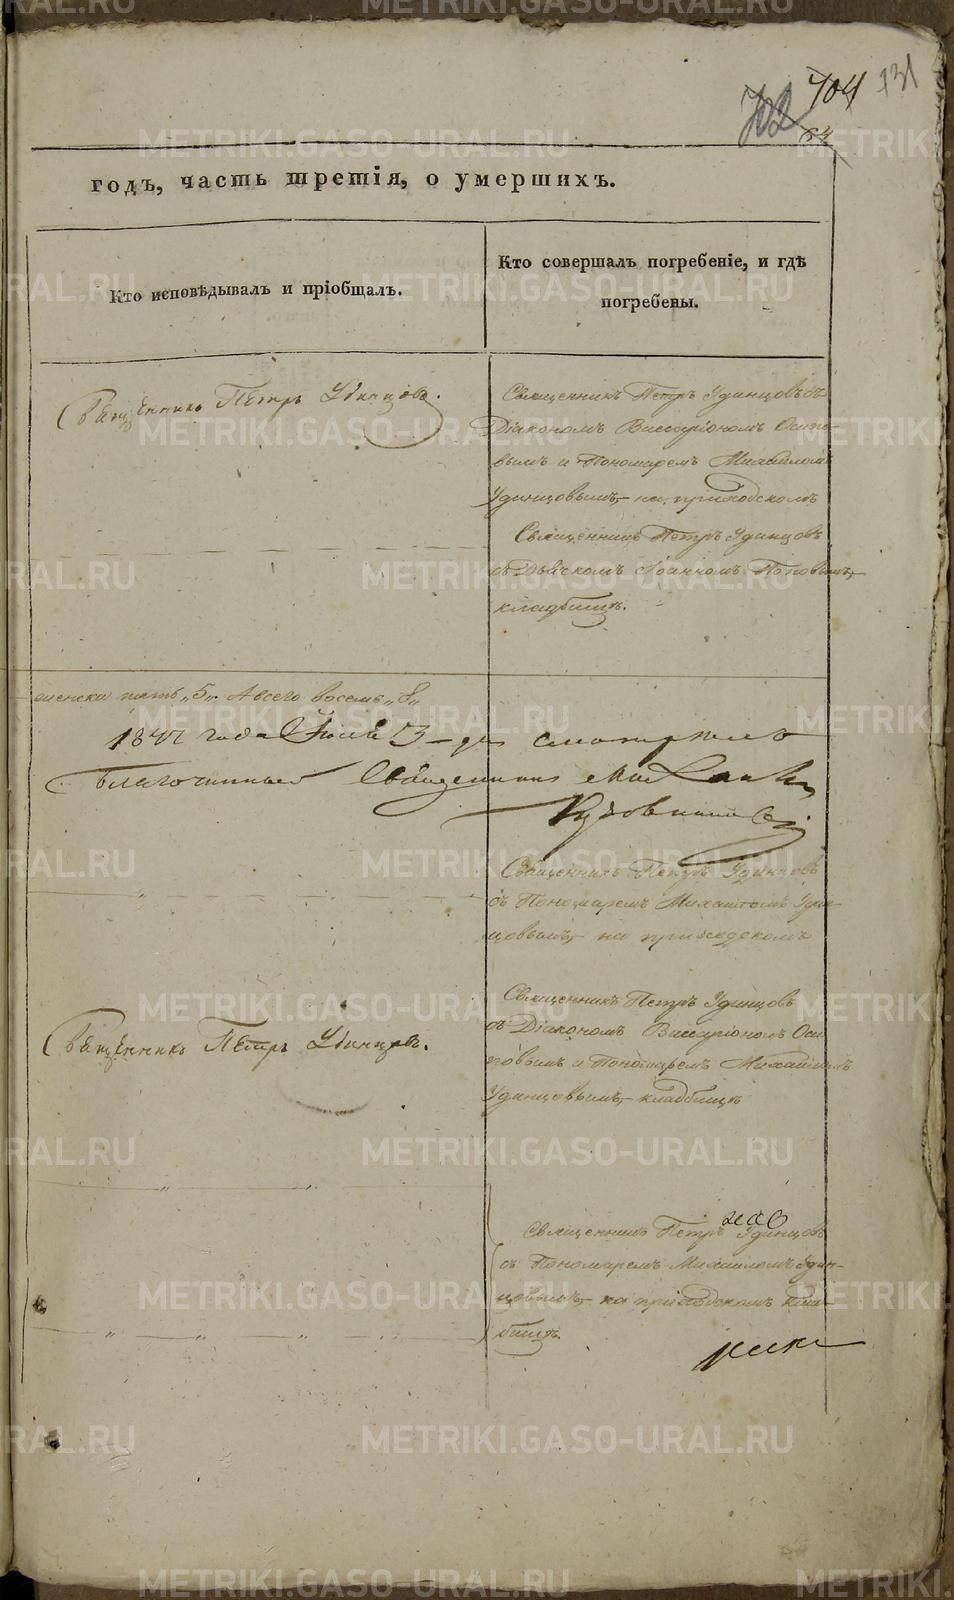 704 131
702
64
годъ, часть третія, о умершихъ.
Кто исповѣдывалъ и пріобщалъ.
Кто совершалъ погребеніе, и гдѣ
погребены.
Священникъ Петръ Удинцовъ.
Священникъ Петръ Удинцовъ съ
Діакономъ Виссаріономъ Осипо-
вымъ и Пономаремъ Михаиломъ
Удинцовымъ, на приходскомъ
Священникъ Петръ Удинцовъ
съ Дьячкомъ Іоанномъ Поповымъ,
кладбищѣ.
женска пять „5„ А всего восемь „8„
1847 года Іюля 3 дня смотрѣлъ
Благочинный Священникъ
Священникъ Петръ Удинцовъ
съ Пономаремъ Михаиломъ Удин-
цовымъ, на приходскомъ
Священникъ Петръ Удинцовъ
съ Діакономъ Виссаріономъ Оси-
повымъ и Пономаремъ Михаиломъ
Удинцовымъ, кладбищѣ
Священникъ Петръ Удинцовъ.
Священникъ Петръ Удинцовъ
съ Пономаремъ Михаиломъ Удин-
цовымъ, на приходскомъ клад-
бищѣ.
METRIKI.GASO-URAL.RU